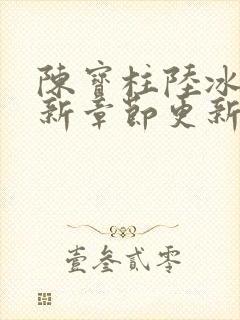 陳寶柱陸冰
新章節更新
壹叁貳零